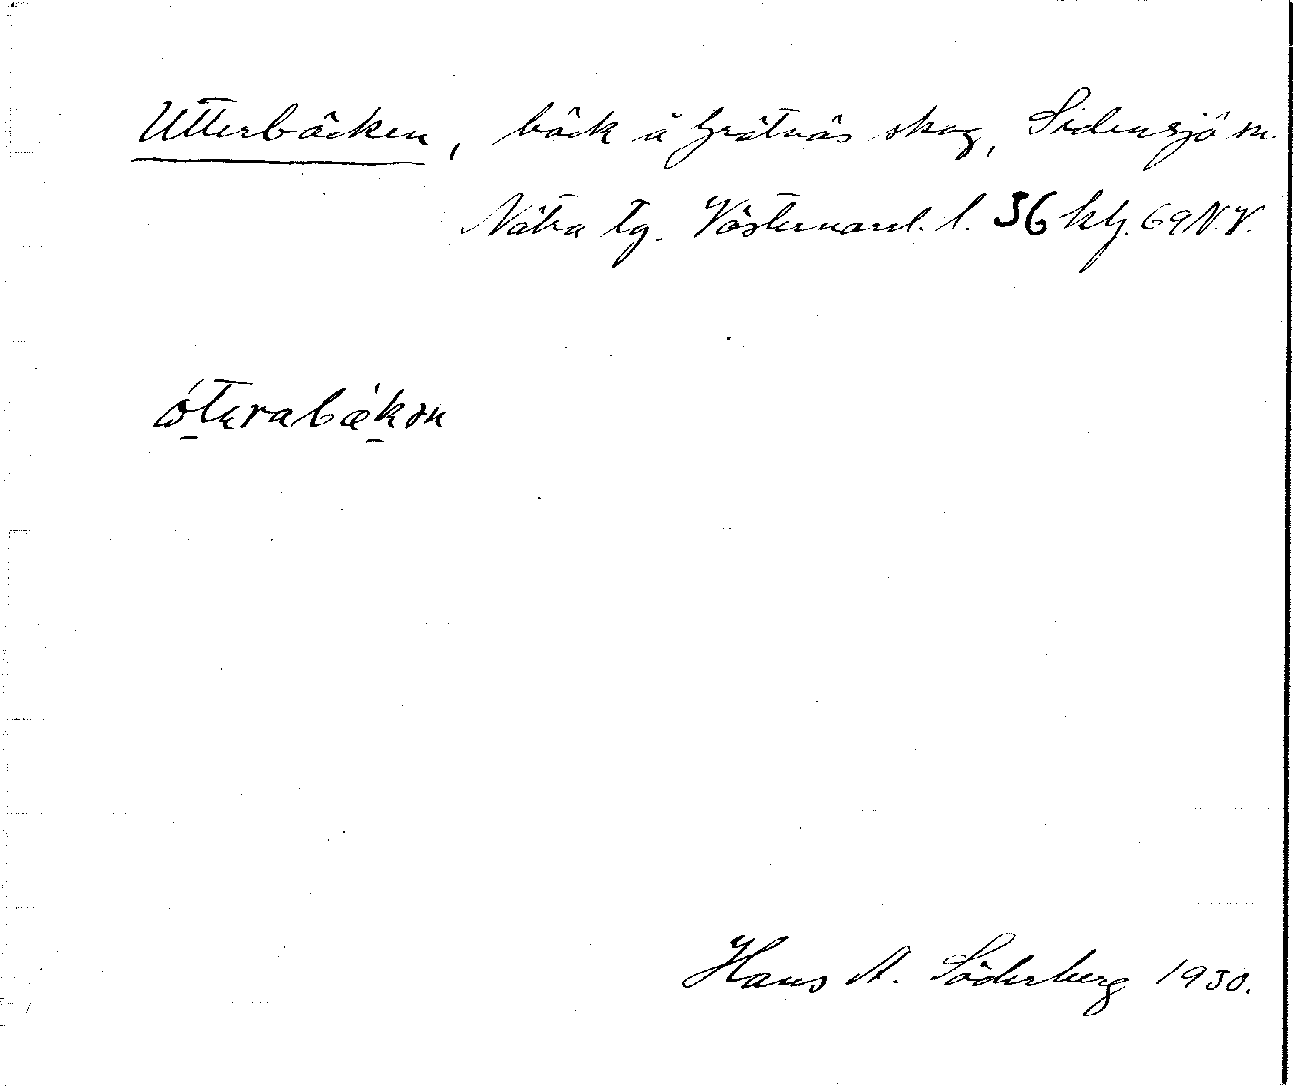 Utterbäcken, bäck å Grätnäs skog, Sidensjö sn.
Nätra tg. Västernorrl. l. 36 kbl. 69 N.V.
Hans A. Söderberg 1930.